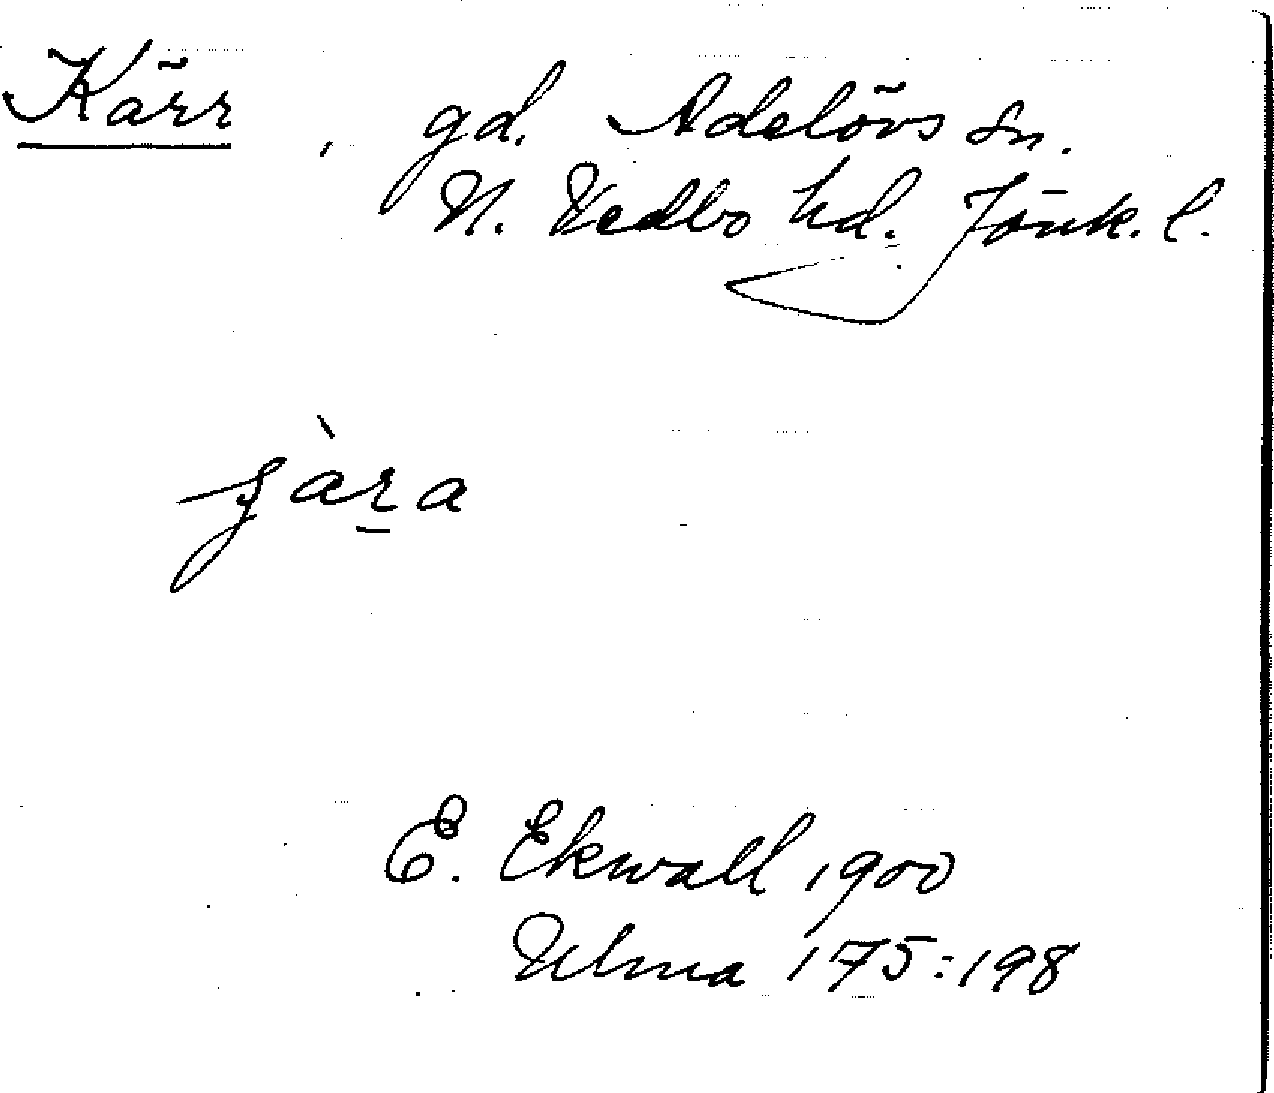 Kärr, gd. Adelövs sn.
N. Vedbo hd. Jönk. l.
jàra
E. Ekwall 1900
Ulma 175:198